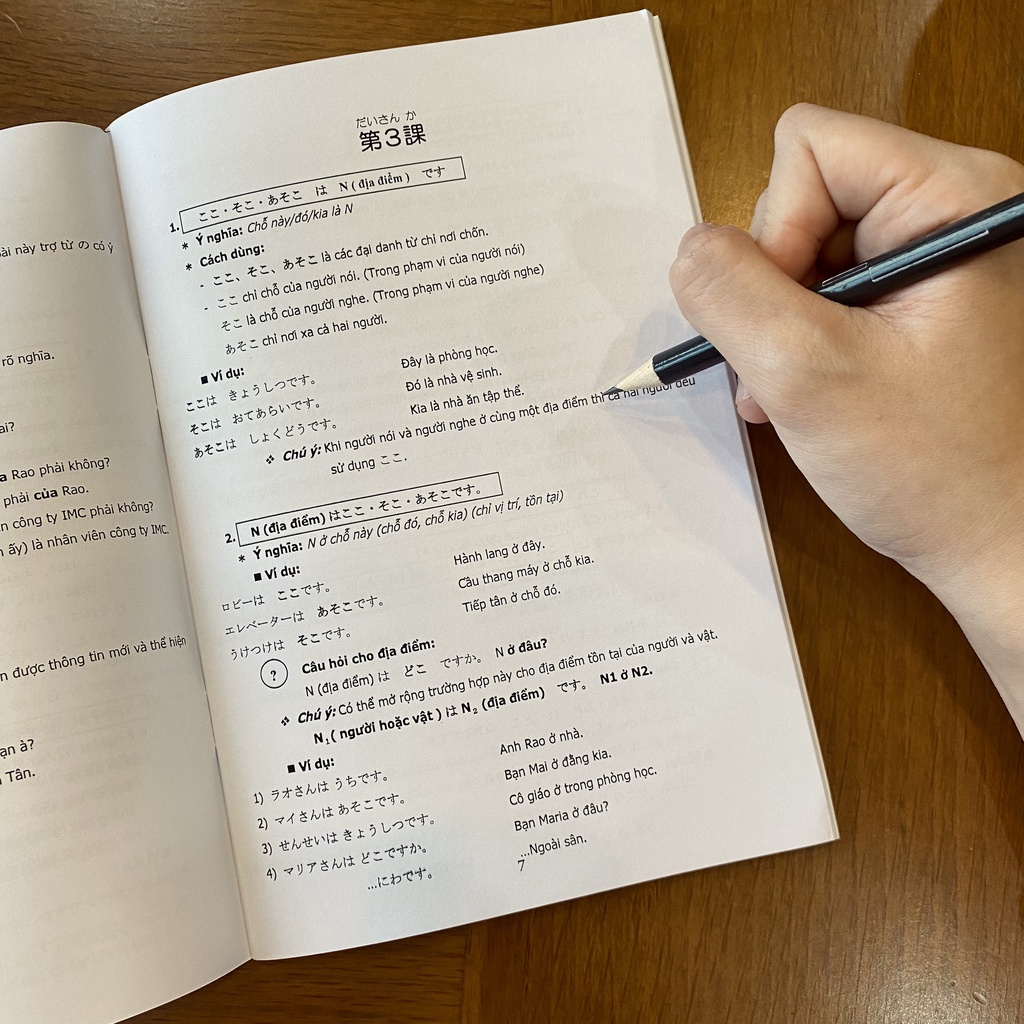 ài này trợ từ の có ý
rõ nghĩa.
ai?
a Rao phải không?
phải của Rao.
n công ty IMC phải không?
n ấy) là nhân viên công ty IMC.
n được thông tin mới và thể hiện
ạn à?
Tân.
だいさん か
第3課
1. ここ・そこ・あそこ は N ( địa điểm ) です
* Ý nghĩa: Chỗ này/đó/kia là N
* Cách dùng:
- ここ、そこ、あそこ là các đại danh từ chỉ nơi chốn.
- ここ chỉ chỗ của người nói. (Trong phạm vi của người nói)
そこ là chỗ của người nghe. (Trong phạm vi của người nghe)
あそこ chỉ nơi xa cả hai người.
■ Ví dụ:
ここは きょうしつです。 Đây là phòng học.
そこは おてあらいです。 Đó là nhà vệ sinh.
あそこは しょくどうです。 Kia là nhà ăn tập thể.
❖ Chú ý: Khi người nói và người nghe ở cùng một địa điểm thì cả hai người đều
sử dụng ここ.
2. N (địa điểm) はここ・そこ・あそこです。
* Ý nghĩa: N ở chỗ này (chỗ đó, chỗ kia) (chỉ vị trí, tồn tại)
■ Ví dụ:
ロビーは ここです。 Hành lang ở đây.
エレベーターは あそこです。 Cầu thang máy ở chỗ kia.
うけつけは そこです。 Tiếp tân ở chỗ đó.
? Câu hỏi cho địa điểm:
N (địa điểm) は どこ ですか。 N ở đâu?
❖ Chú ý: Có thể mở rộng trường hợp này cho địa điểm tồn tại của người và vật.
N₁( người hoặc vật ) は N₂ (địa điểm) です。 N1 ở N2.
■ Ví dụ:
1) ラオさんは うちです。 Anh Rao ở nhà.
2) マイさんは あそこです。 Bạn Mai ở đằng kia.
3) せんせいは きょうしつです。 Cô giáo ở trong phòng học.
4) マリアさんは どこですか。 Bạn Maria ở đâu?
...にわです。 ...Ngoài sân.
7